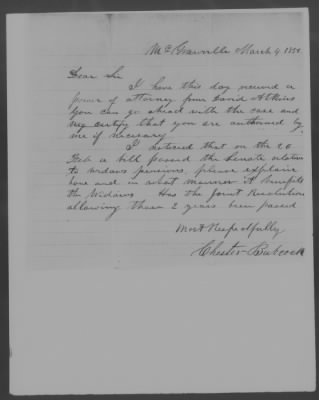 McGrawville March 4 185
Dear Sir
I have this day received a
power of attorney from David Atkins
You can go ahead with the case and
may certify that you are authorised by
me if necessary
I noticed that on the 26
Feb a bill passed the Senate relation
to widows pensions, please explain
how and in what manner it benefits
the Widows Has the Joint Resolution
allowing them 2 years been passed
Most Respectfully
Chester Babcock